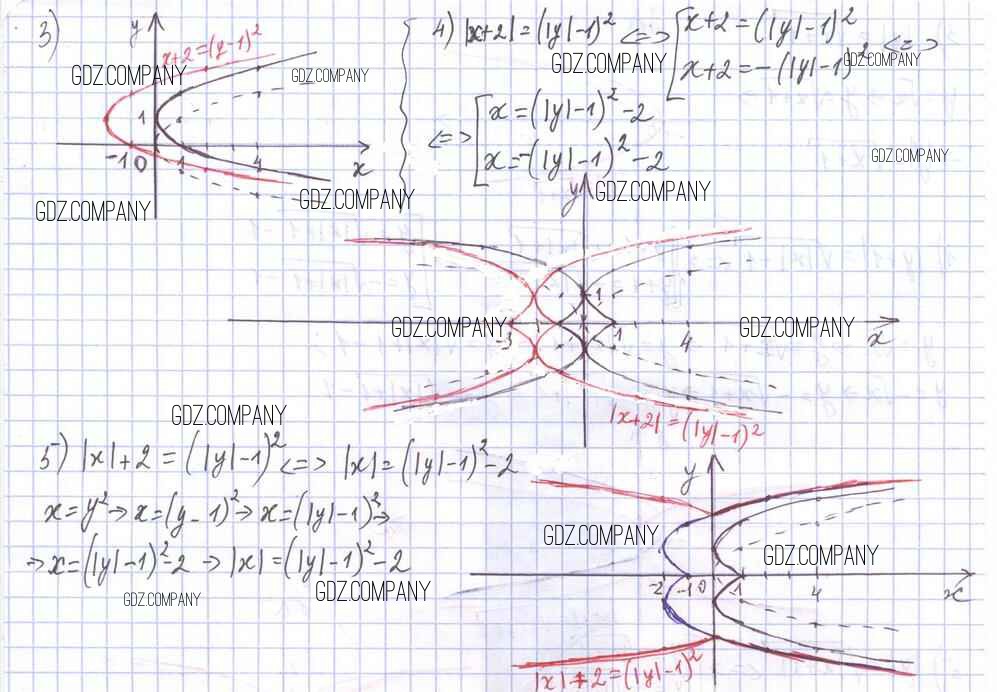 3)
y
x+2=(y-1)²
GDZ.COMPANY
GDZ.COMPANY
1
-1 0 1 4 x
GDZ.COMPANY
GDZ.COMPANY
4) |x+2|=(|y|-1)² <=> [ x+2=(|y|-1)²
x+2=-(|y|-1)² <=>
GDZ.COMPANY
GDZ.COMPANY
<=> [ x=(|y|-1)²-2
x=-(|y|-1)²-2
GDZ.COMPANY
y
GDZ.COMPANY
1
GDZ.COMPANY
GDZ.COMPANY
-3 1 4 x
|x+2|=(|y|-1)²
GDZ.COMPANY
5) |x|+2=(|y|-1)² <=> |x|=(|y|-1)²-2
x=y² → x=(y-1)² → x=(|y|-1)² →
→ x=(|y|-1)²-2 → |x|=(|y|-1)²-2
GDZ.COMPANY
GDZ.COMPANY
y
GDZ.COMPANY
GDZ.COMPANY
-2 -1 0 1 4 x
|x|+2=(|y|-1)²